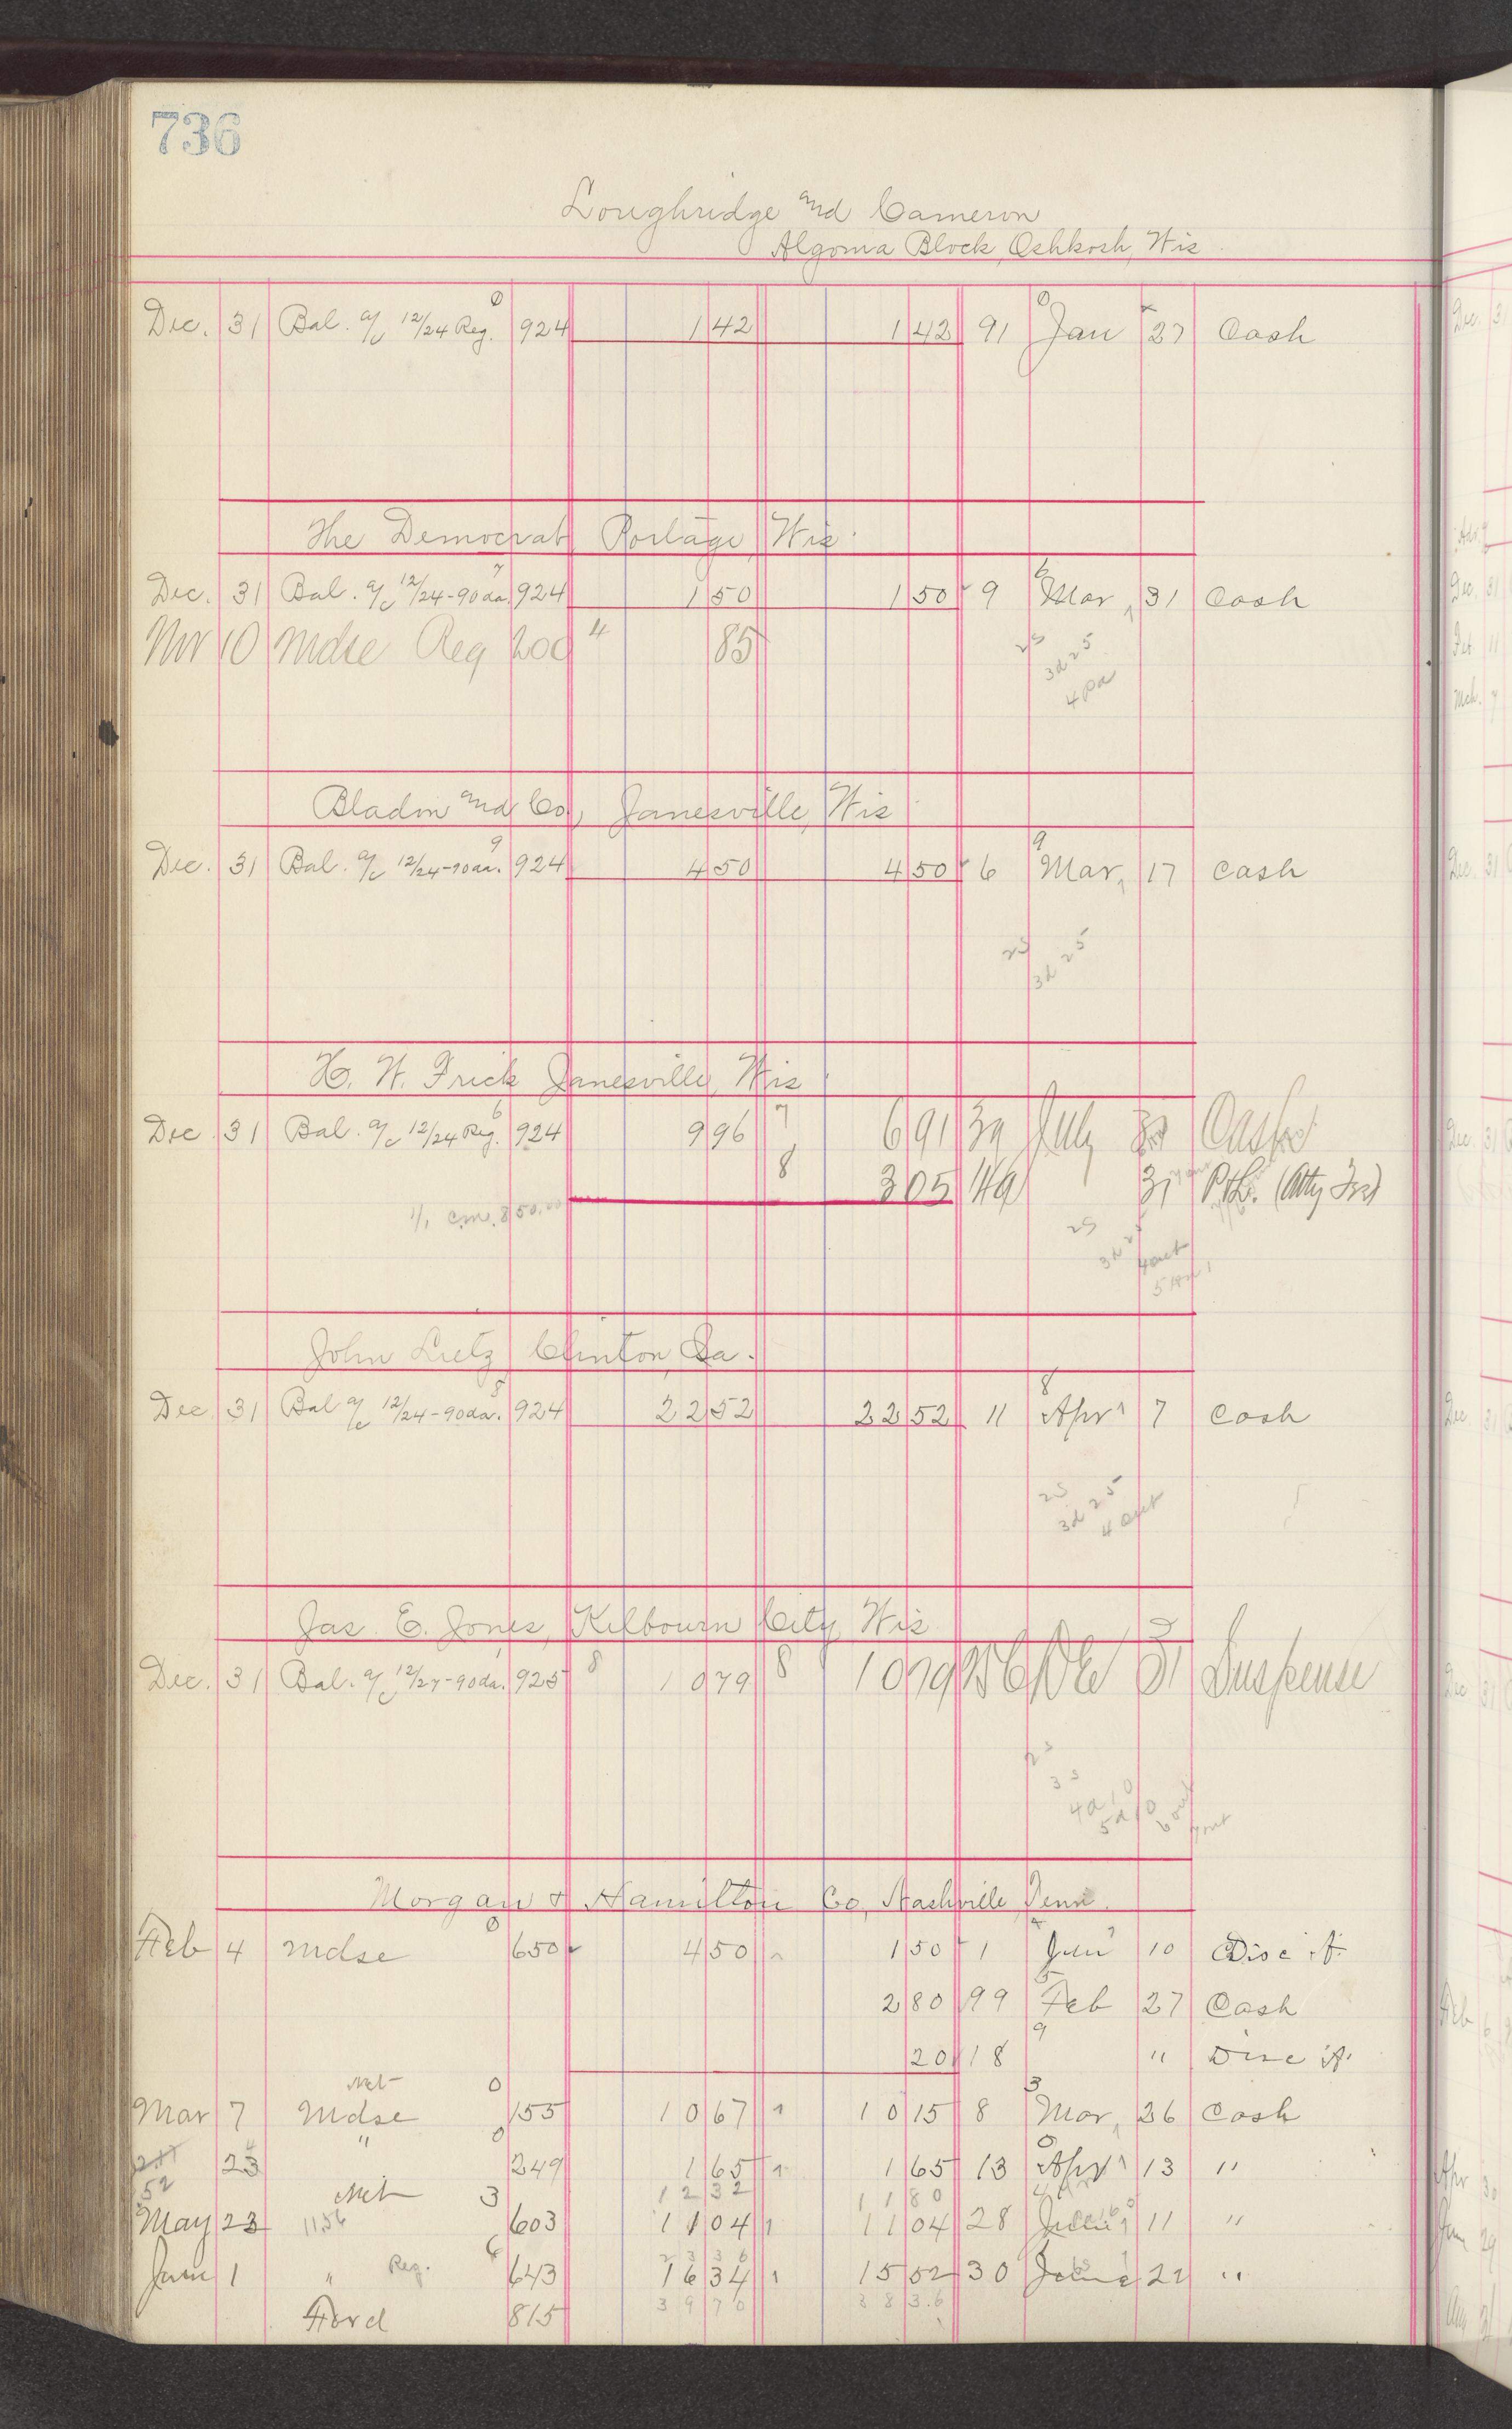 736
Loughridge and Cameron
Algoma Block, Oshkosh, Wis
Dec. 31 Bal. a/c 12/24 Reg. 0 924 1 42 1 42 91 0 Jan 27 Cash
The Democrat Portage, Wis.
Dec. 31 Bal. a/c 12/24-90 da. 7 924 1 50 1 50 9 6 Mar, 31 Cash
Nov 10 Mdse Reg 200 4 85
25
3d 25
4 Pa
Bladon and Co., Janesville, Wis
Dec. 31 Bal. a/c 12/24-90 da. 9 924 4 50 4 50 6 9 Mar, 17 Cash
25
3d 25
H. W. Frick Janesville, Wis
Dec. 31 Bal. a/c 12/24 Reg. 6 924 9 96 7 6 91 39 July Cash
8 3 05 49 31 P&L. (Atty Fee)
1/1 850.00
25
3d 25
4 out
John Lietz Clinton, Ia.
Dec 31 Bal a/c 12/24-90 da. 8 924 22 52 22 52 11 8 Apr 7 Cash
25
3d 25
4 out
Jas. E. Jones, Kilbourn City, Wis
Dec. 31 Bal. a/c 12/27-90 da. 925 8 10 79 8 10 79 Dec 31 Suspense
25
33
4a10
5d10
6 out
Morgan & Hamilton Co, Nashville, Tenn.
Feb 4 Mdse 0 650 4 50 1 50 1 Jan 10 Disc A
2 80 99 5 Feb 27 Cash
20 18 9 " Disc A
Net
Mar 7 Mdse 0 155 10 67 10 15 8 3 Mar, 26 Cash
23 " 0 249 1 65 1 65 13 0 Apr 13 "
52 Net 12 32 11 80
May 23 1156 3 603 11 04 11 04 28 June 11 "
23 36
Jun 1 " Reg. 6 643 16 34 15 52 30 June 22 "
39 70 38 3.6
Ford 815